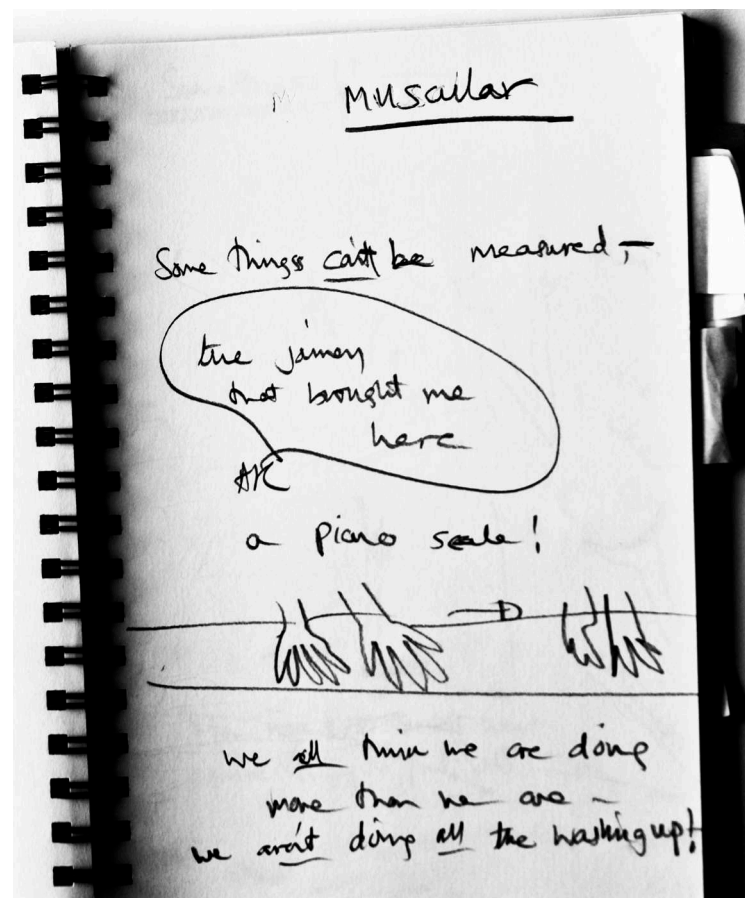 Muscular
Some things can't be measured, —
the journey
that brought me
here
a piano scale!
we all think we are doing
more than we are —
we aren't doing all the washing up!